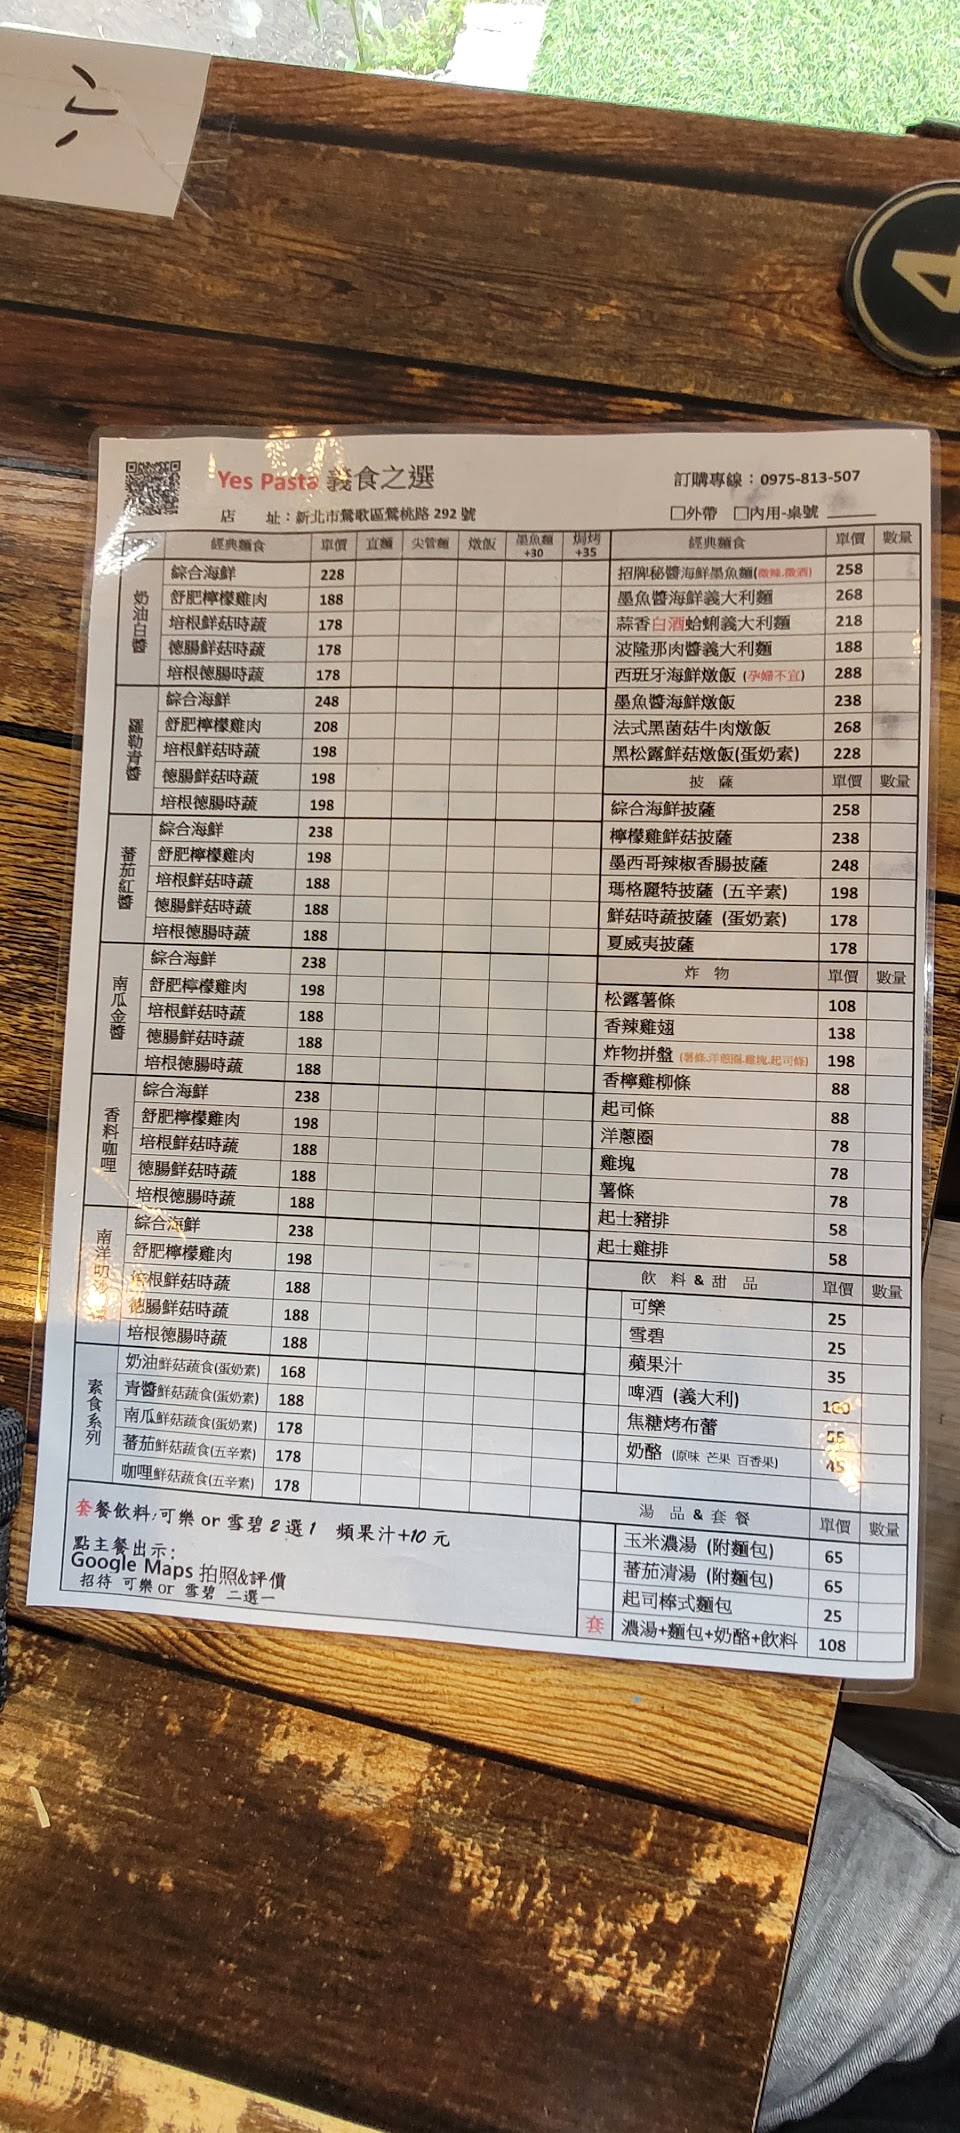 六
4
Yes Pasta 義食之選
訂購專線：0975-813-507
店 址：新北市鶯歌區鶯桃路 292 號
□外帶 □內用-桌號
經典麵食 單價 直麵 尖管麵 燉飯 墨魚麵+30 焗烤+35
奶油白醬
綜合海鮮 228
舒肥檸檬雞肉 188
培根鮮菇時蔬 178
德腸鮮菇時蔬 178
培根德腸時蔬 178
羅勒青醬
綜合海鮮 248
舒肥檸檬雞肉 208
培根鮮菇時蔬 198
德腸鮮菇時蔬 198
培根德腸時蔬 198
蕃茄紅醬
綜合海鮮 238
舒肥檸檬雞肉 198
培根鮮菇時蔬 188
德腸鮮菇時蔬 188
培根德腸時蔬 188
南瓜金醬
綜合海鮮 238
舒肥檸檬雞肉 198
培根鮮菇時蔬 188
德腸鮮菇時蔬 188
培根德腸時蔬 188
香料咖哩
綜合海鮮 238
舒肥檸檬雞肉 198
培根鮮菇時蔬 188
德腸鮮菇時蔬 188
培根德腸時蔬 188
南洋叻
綜合海鮮 238
舒肥檸檬雞肉 198
培根鮮菇時蔬 188
德腸鮮菇時蔬 188
培根德腸時蔬 188
素食系列
奶油鮮菇蔬食(蛋奶素) 168
青醬鮮菇蔬食(蛋奶素) 188
南瓜鮮菇蔬食(蛋奶素) 178
蕃茄鮮菇蔬食(五辛素) 178
咖哩鮮菇蔬食(五辛素) 178
套餐飲料:可樂 or 雪碧 2 選 1 頻果汁+10 元
點主餐出示:
Google Maps 拍照&評價
招待 可樂 or 雪碧 二選一
經典麵食 單價 數量
招牌秘醬海鮮墨魚麵(微辣.微酒) 258
墨魚醬海鮮義大利麵 268
蒜香白酒蛤蜊義大利麵 218
波隆那肉醬義大利麵 188
西班牙海鮮燉飯 (孕婦不宜) 288
墨魚醬海鮮燉飯 238
法式黑菌菇牛肉燉飯 268
黑松露鮮菇燉飯(蛋奶素) 228
披 薩 單價 數量
綜合海鮮披薩 258
檸檬雞鮮菇披薩 238
墨西哥辣椒香腸披薩 248
瑪格麗特披薩 (五辛素) 198
鮮菇時蔬披薩 (蛋奶素) 178
夏威夷披薩 178
炸 物 單價 數量
松露薯條 108
香辣雞翅 138
炸物拼盤 (薯條.洋蔥圈.雞塊.起司條) 198
香檸雞柳條 88
起司條 88
洋蔥圈 78
雞塊 78
薯條 78
起士豬排 58
起士雞排 58
飲 料 & 甜 品 單價 數量
可樂 25
雪碧 25
蘋果汁 35
啤酒 (義大利)
焦糖烤布蕾 55
奶酪 (原味 芒果 百香果) 45
湯 品 & 套 餐 單價 數量
玉米濃湯 (附麵包) 65
蕃茄清湯 (附麵包) 65
起司棒式麵包 25
套 濃湯+麵包+奶酪+飲料 108